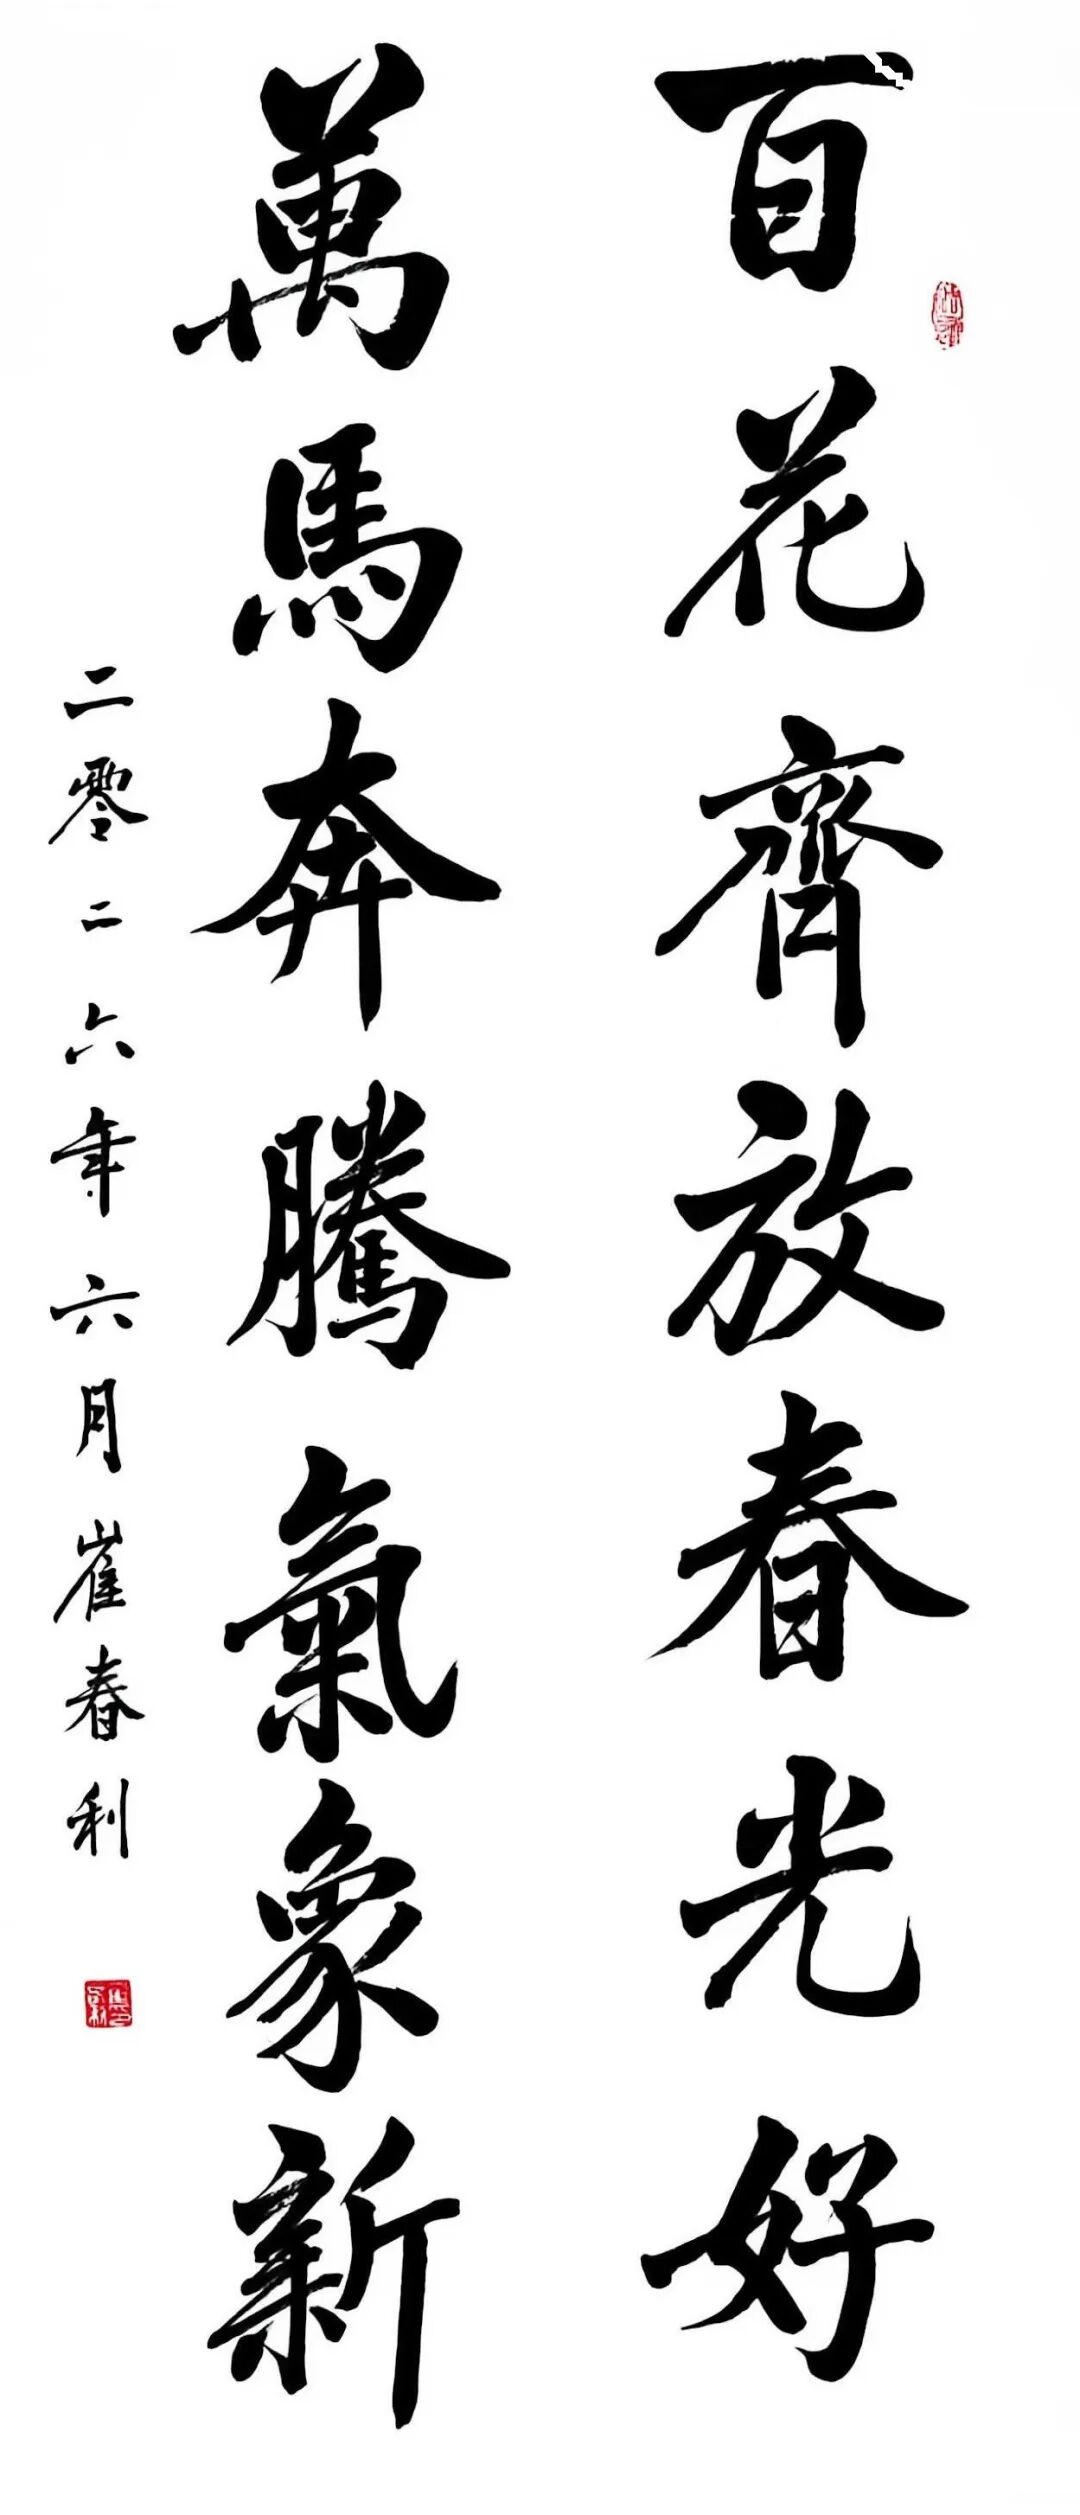 百花齊放春光好
萬馬奔騰氣象新
二零二六年六月崔春利